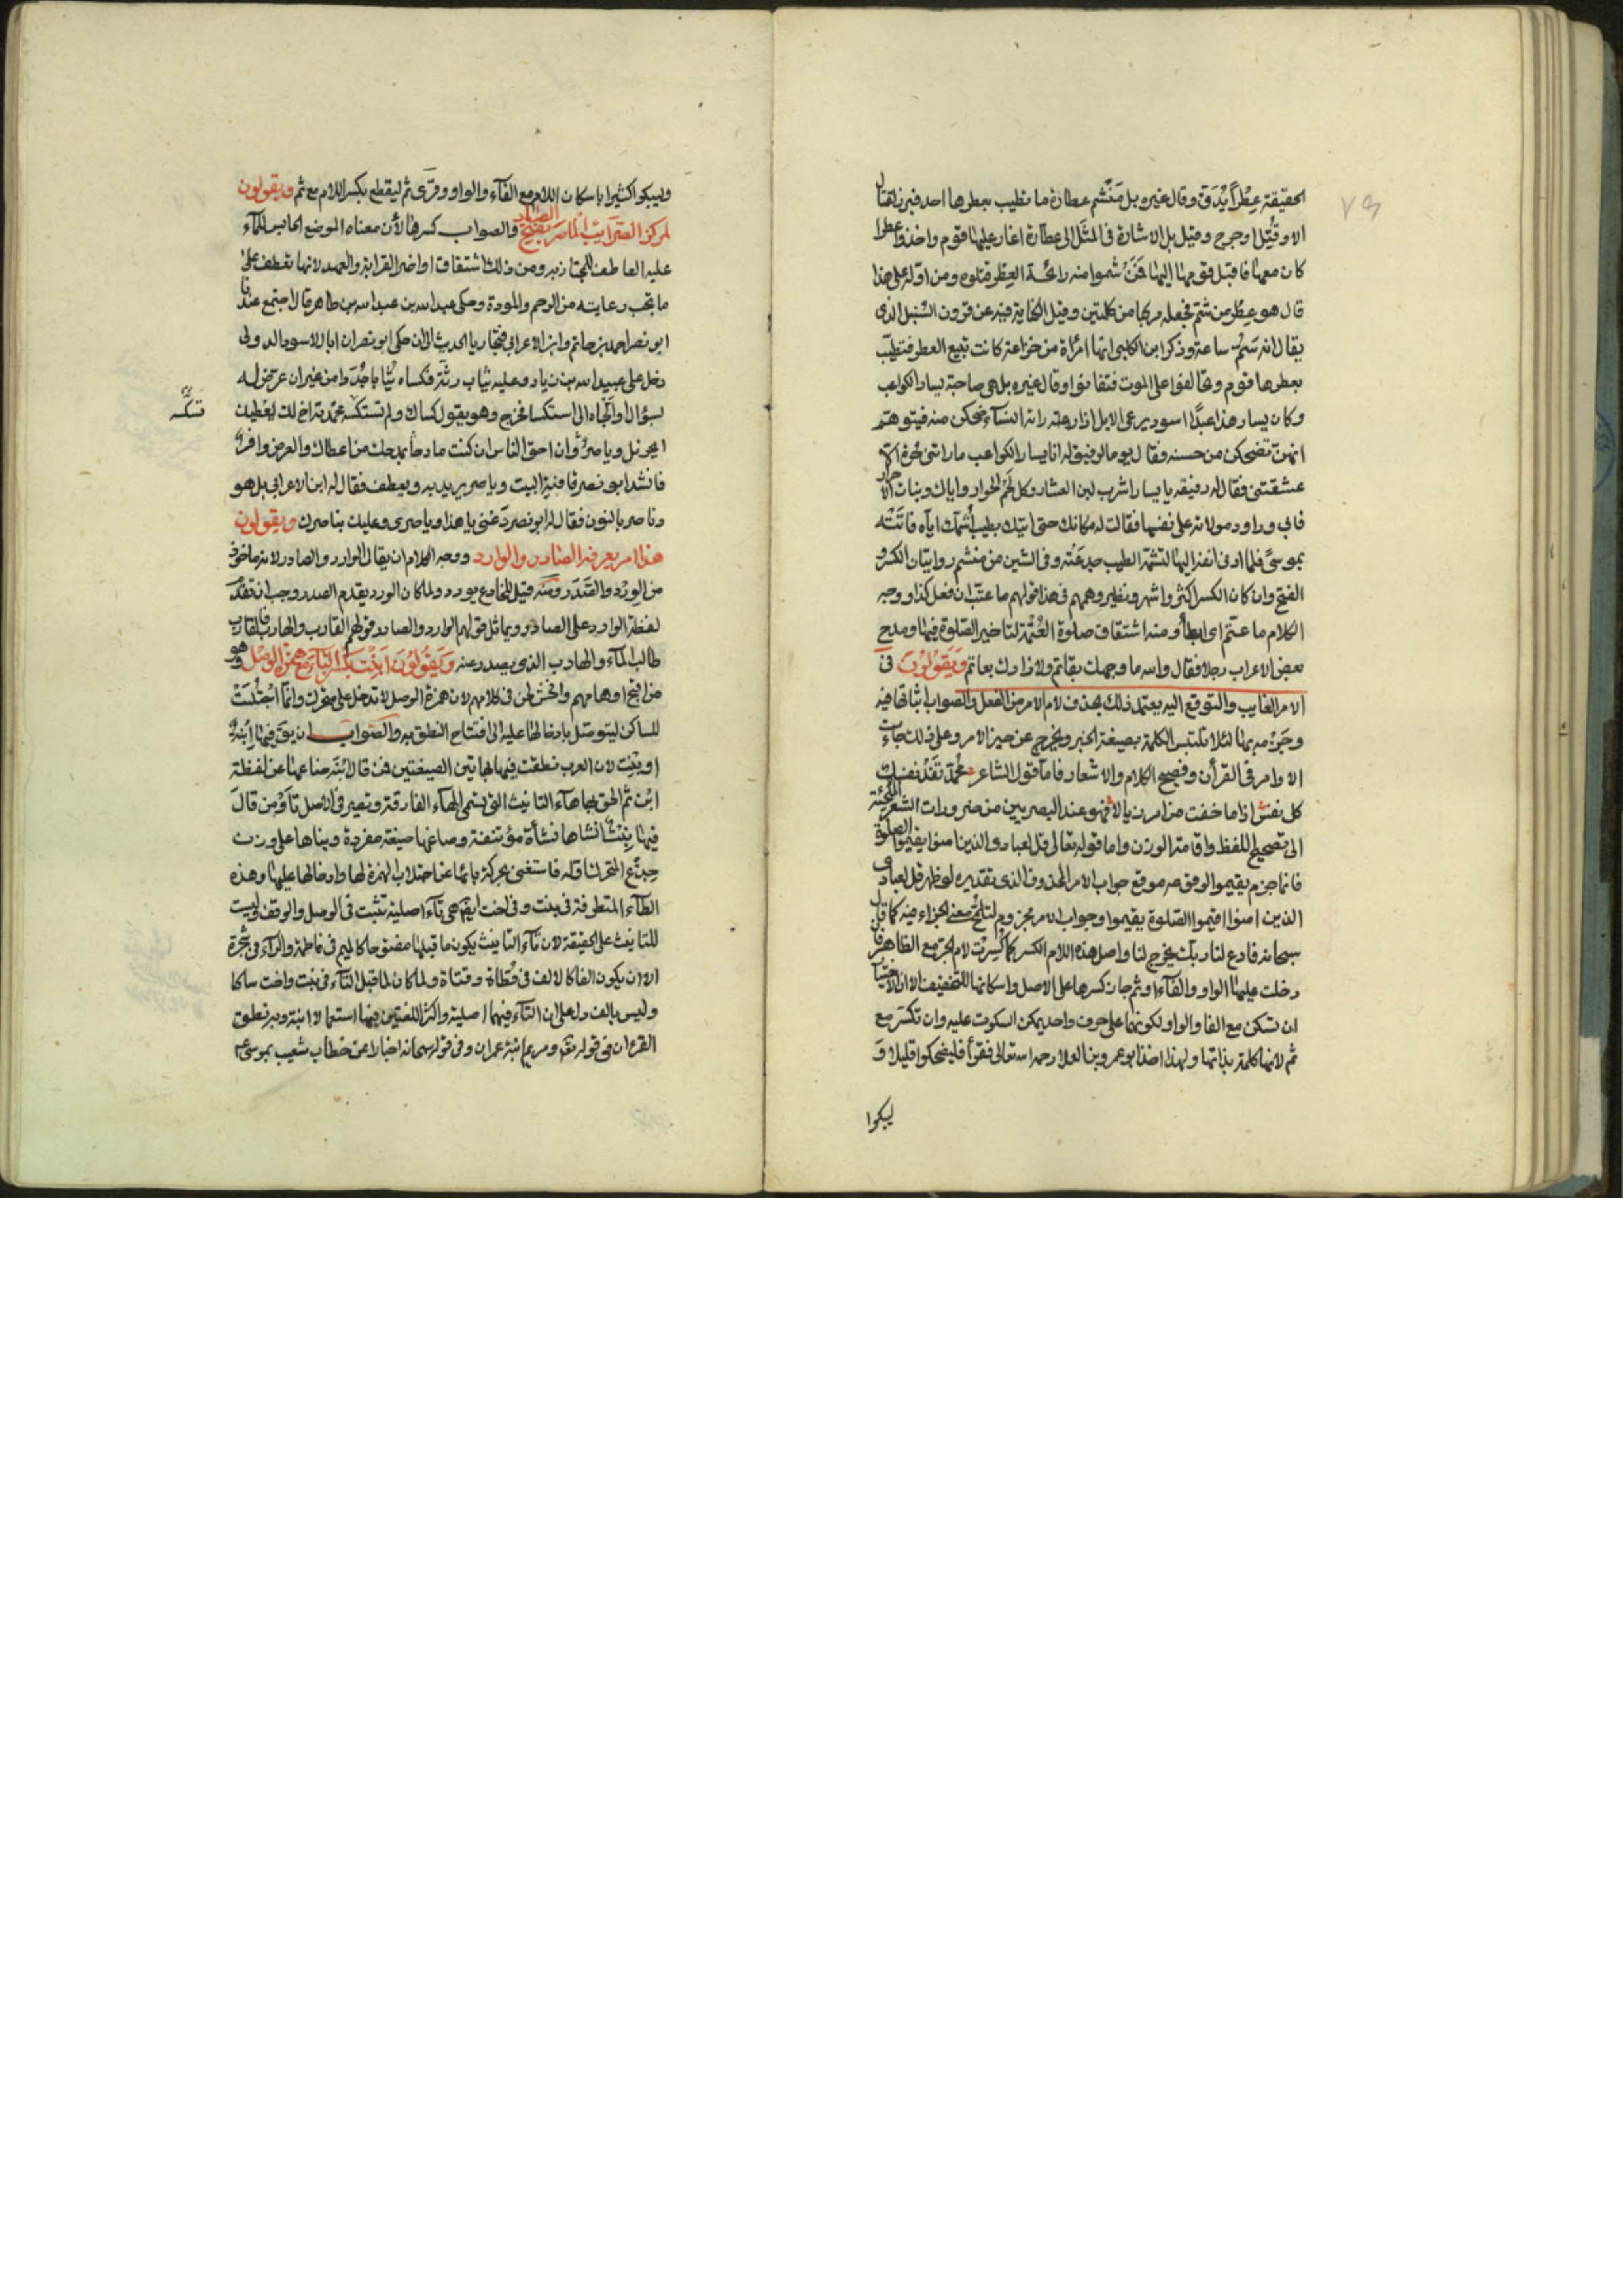 الحقيقة عِطْرًا يُدَقّ وقال غيره بل مَنْشم عطارة ما تطيب بعطرها احد فبرز لقتال
الا وقُتِل اوجرح وقيل بل الاشارة فى المثَل الى عطّارة اغار عليها قوم واخذوا عطرا
كان معها فاقبل قومها اليها فمَنْ شموا منه رائحة العِطر قتلوه ومن اوّله على هذا
قال هو عِطْر من شَمّ فجعله مركبا من كلمتين وقيل الكناية فيه عن قرون السُنبل الذى
يقال انه سَمُّ ساعة وذكر ابن الكلبى انها امرُأة من خزاعة كانت تبيع العطر فتطيّب
بعطرها قوم وتحالفوا على الموت فتفانوا وقال غيره بل هى صاحبة يسار الكواعب
وكان يسار هذا عبدًا اسود يرعى الابل اذا رعته راته النسآء ضحكن منه فيتوهّم
انهنّ تضحكن من حسنه فقال يوما لرفيق له انا يسار الكواعب ما راتنى حُرة الا
عشقتنى فقال له رفيقه يا يسار اشرب لبن العشار وكل لحْم الحوار واياك وبنات الاحرار
فابى وراود مولاته على نفسها فقالت له مكانك حتى اتيك بطيب اُشمّك اياه فاتَتْه
بموسىً فلما ادنى انفه اليها لتشمّه الطيب جدعَتْه وفى الشين من منشم روايتان الكسر و
الفتح وان كان الكسر اكثر واشهر ونظير وهمهم فى هذا قولهم ما عتّب ان فعل كذا ووجه
الكلام ما عتّم اى ابطأ ومنه اشتقاق صلوة العَتَمة لتاخير الصّلوة فيها ومدح
بعض الاعراب رجلا فقال والله ما وجهك بقاتم ولا زادك بعاتم وَيَقُوْلُوْنَ فى
الامر الغايب والتوقع اليه يعتمد ذلك بحذف لام الامر من الفعل والصواب اثباتها فيه
وجَزْمه بها لئلا تلتبس الكلمة بصيغة الخبر ويخرج عن حيز الامر وعلى ذلك جاءت
الاوامر فى القرأن وفصيح الكلام والاشعار فاما قول الشاعر محمّد تَفْدِ نفسك
كل نفس اذا ما خفت من امر تبالا فهو عند البصريين من ضرورات الشعر الملجئة
الى تصحيح اللفظ واقامة الوزن واما قوله تعالى قل لعبادى الذين امنوا يقيموا الصلوة
فانما جزم يقيموا لوقوعه موقع جواب الامر المحذوف الذى تقديره لو ظهر قل لعبادى
الذين امنوا اقيموا الصّلوة يقيموا وجواب الامر مجزوم لتلمّح معنى الجزاء فيه كما قال
سبحانه فادع لنا ربك يخرج لنا واصل هذه اللام الكسر كما كُسِرَت لام الجر مع الظاهر فان
دخلت عليها الواو والفآء او ثم جاز كسرها على الاصل واسكانها للتخفيف الا ان الاختيار
ان تسكن مع الفا والواو لكونهما على حرف واحد يمكن السكوت عليه وان تكسر مع
ثم لانها كلمة بذاتها ولهذا اخذ ابو عمرو بن العلا رحمه الله تعالى فقرأ فليضحكوا قليلا وَ
ليبكوا
وليبكوا كثيرا باسكان اللام مع الفآء والواو وقرى ثم ليقطع بكسر اللام مع ثم ويقولون
لمركز الضّرائب الماصَر بفتح الصاد والصواب كسرها لأن معناه الموضع الحابس للمآء
عليه العاطف للمجتاز به ومن ذلك اشتقاق اواصر القرابة والعهد لانها تعطف على
ما يجب رعايته من الرحم والمودة وحكى عبيد الله بن عبد الله بن طاهر قال اجتمع عندنا
ابو نصر احمد بن حاتم وابن الاعرابى فتجاريا الحديث الى ان حكى ابو نصر ان ابا الاسود الدولى
دخل على عبيد الله بن زياد وعليه ثياب رثّة فكساه ثيابا جُدَدا من غير ان عرّض له
بسؤال او الجأه الى استكسا فخرج وهو يقول كساك ولم تستكسه فحمدته اخ لك يعطيك
تسكّنه
الجزيل وياصرُ وان احق الناس ان كنت مادحا بمدحك من اعطاك والعرض وافرُ
فانشد ابو نصر قافية البيت وياصر يريد به ويعطف فقال له ابن الاعرابى بل هو
وناصر بالنون فقال له ابو نصر دَعْنى يا هذا وياصرى وعليك بناصرك ويقولون
هذا امر يعرفه الصّادر والوارد ووجه الكلام ان يقال الوارد والصادر لانه ماخوذ
من الوِرْد والصَّدَر ومنه قيل للخادع يورد ولما كان الورد يقدم الصدر وجب ان تقدّم
لفظة الوارد على الصادر ويماثل قولهم الوارد والصادر قولهم القارب والهارب فالقارب
طالب المآء والهارب الذى يصدر عنه وَيَقُوْلُوْنَ ابْنْتُ بكَسْر التآء مع همزة الوصْل وهو
من اقبح اوهامهم وافحش لحن فى كلامهم لان همزة الوصل لا تدخل على متحرك وانما اجْتُلبَتْ
للساكن ليتوصّل بادخالها عليه الى افتتاح النطق به والصَواب ان يق فيها اِبْنَةٌ
او بِنْت لان العرب نطقت فيها بهاتين الصيغتين فمن قال ابْنَة صاغها عن لفظة
ابْن ثم الحق بها هآء التانيث التى تسمى الهآء الفارقة وتصير فى الاصل تآء وَمن قالَ
فيها بِنْت انشاها نشأة مؤتنفة وصاغها صيغة مفردة وبناها على وزن
جِذْع المتحرك اوله فاستغنى بحركة بائها عن اجتلاب الهمزة لها وادخالها عليها وهذه
التآء المتطرفة فى بنت وفى اخت ايضا هى تآء اصلية تثبت فى الوصل والوقف وليست
للتانيث على الحقيقة لان تآء التانيث يكون ما قبلها مفتوحا كالميم فى فاطمة والرآء فى شجَرة
الا ان يكون الفا كالالف فى قَطاة وقتاة ولما كان ما قبل التآء فى بنت واخت ساكنا
وليس بالف دل على ان التآء فيهما اصلية واكثر اللغتين فيها استعمالا ابنة وبه نطق
القرءان فى قوله تعٰم ومريم ابْنة عمران وفى قوله سبحانه اخبارا عن خطاب شعيب لموسىٰ